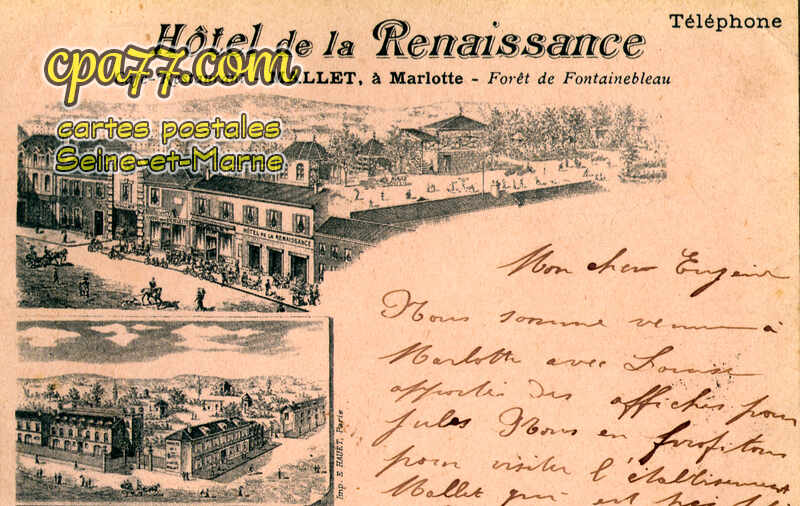 Téléphone
Hôtel de la Renaissance
MALLET, à Marlotte - Forêt de Fontainebleau
cpa77.com
cartes postales
Seine-et-Marne
HÔTEL DE LA RENAISSANCE
Imp. E. HAUET, Paris
Mon cher Eugène
Nous somme venu à
Marlotte avec Louise
apportés des affiches pour
Jules Nous en profitons
pour visiter l'établissement
Mallet qui est